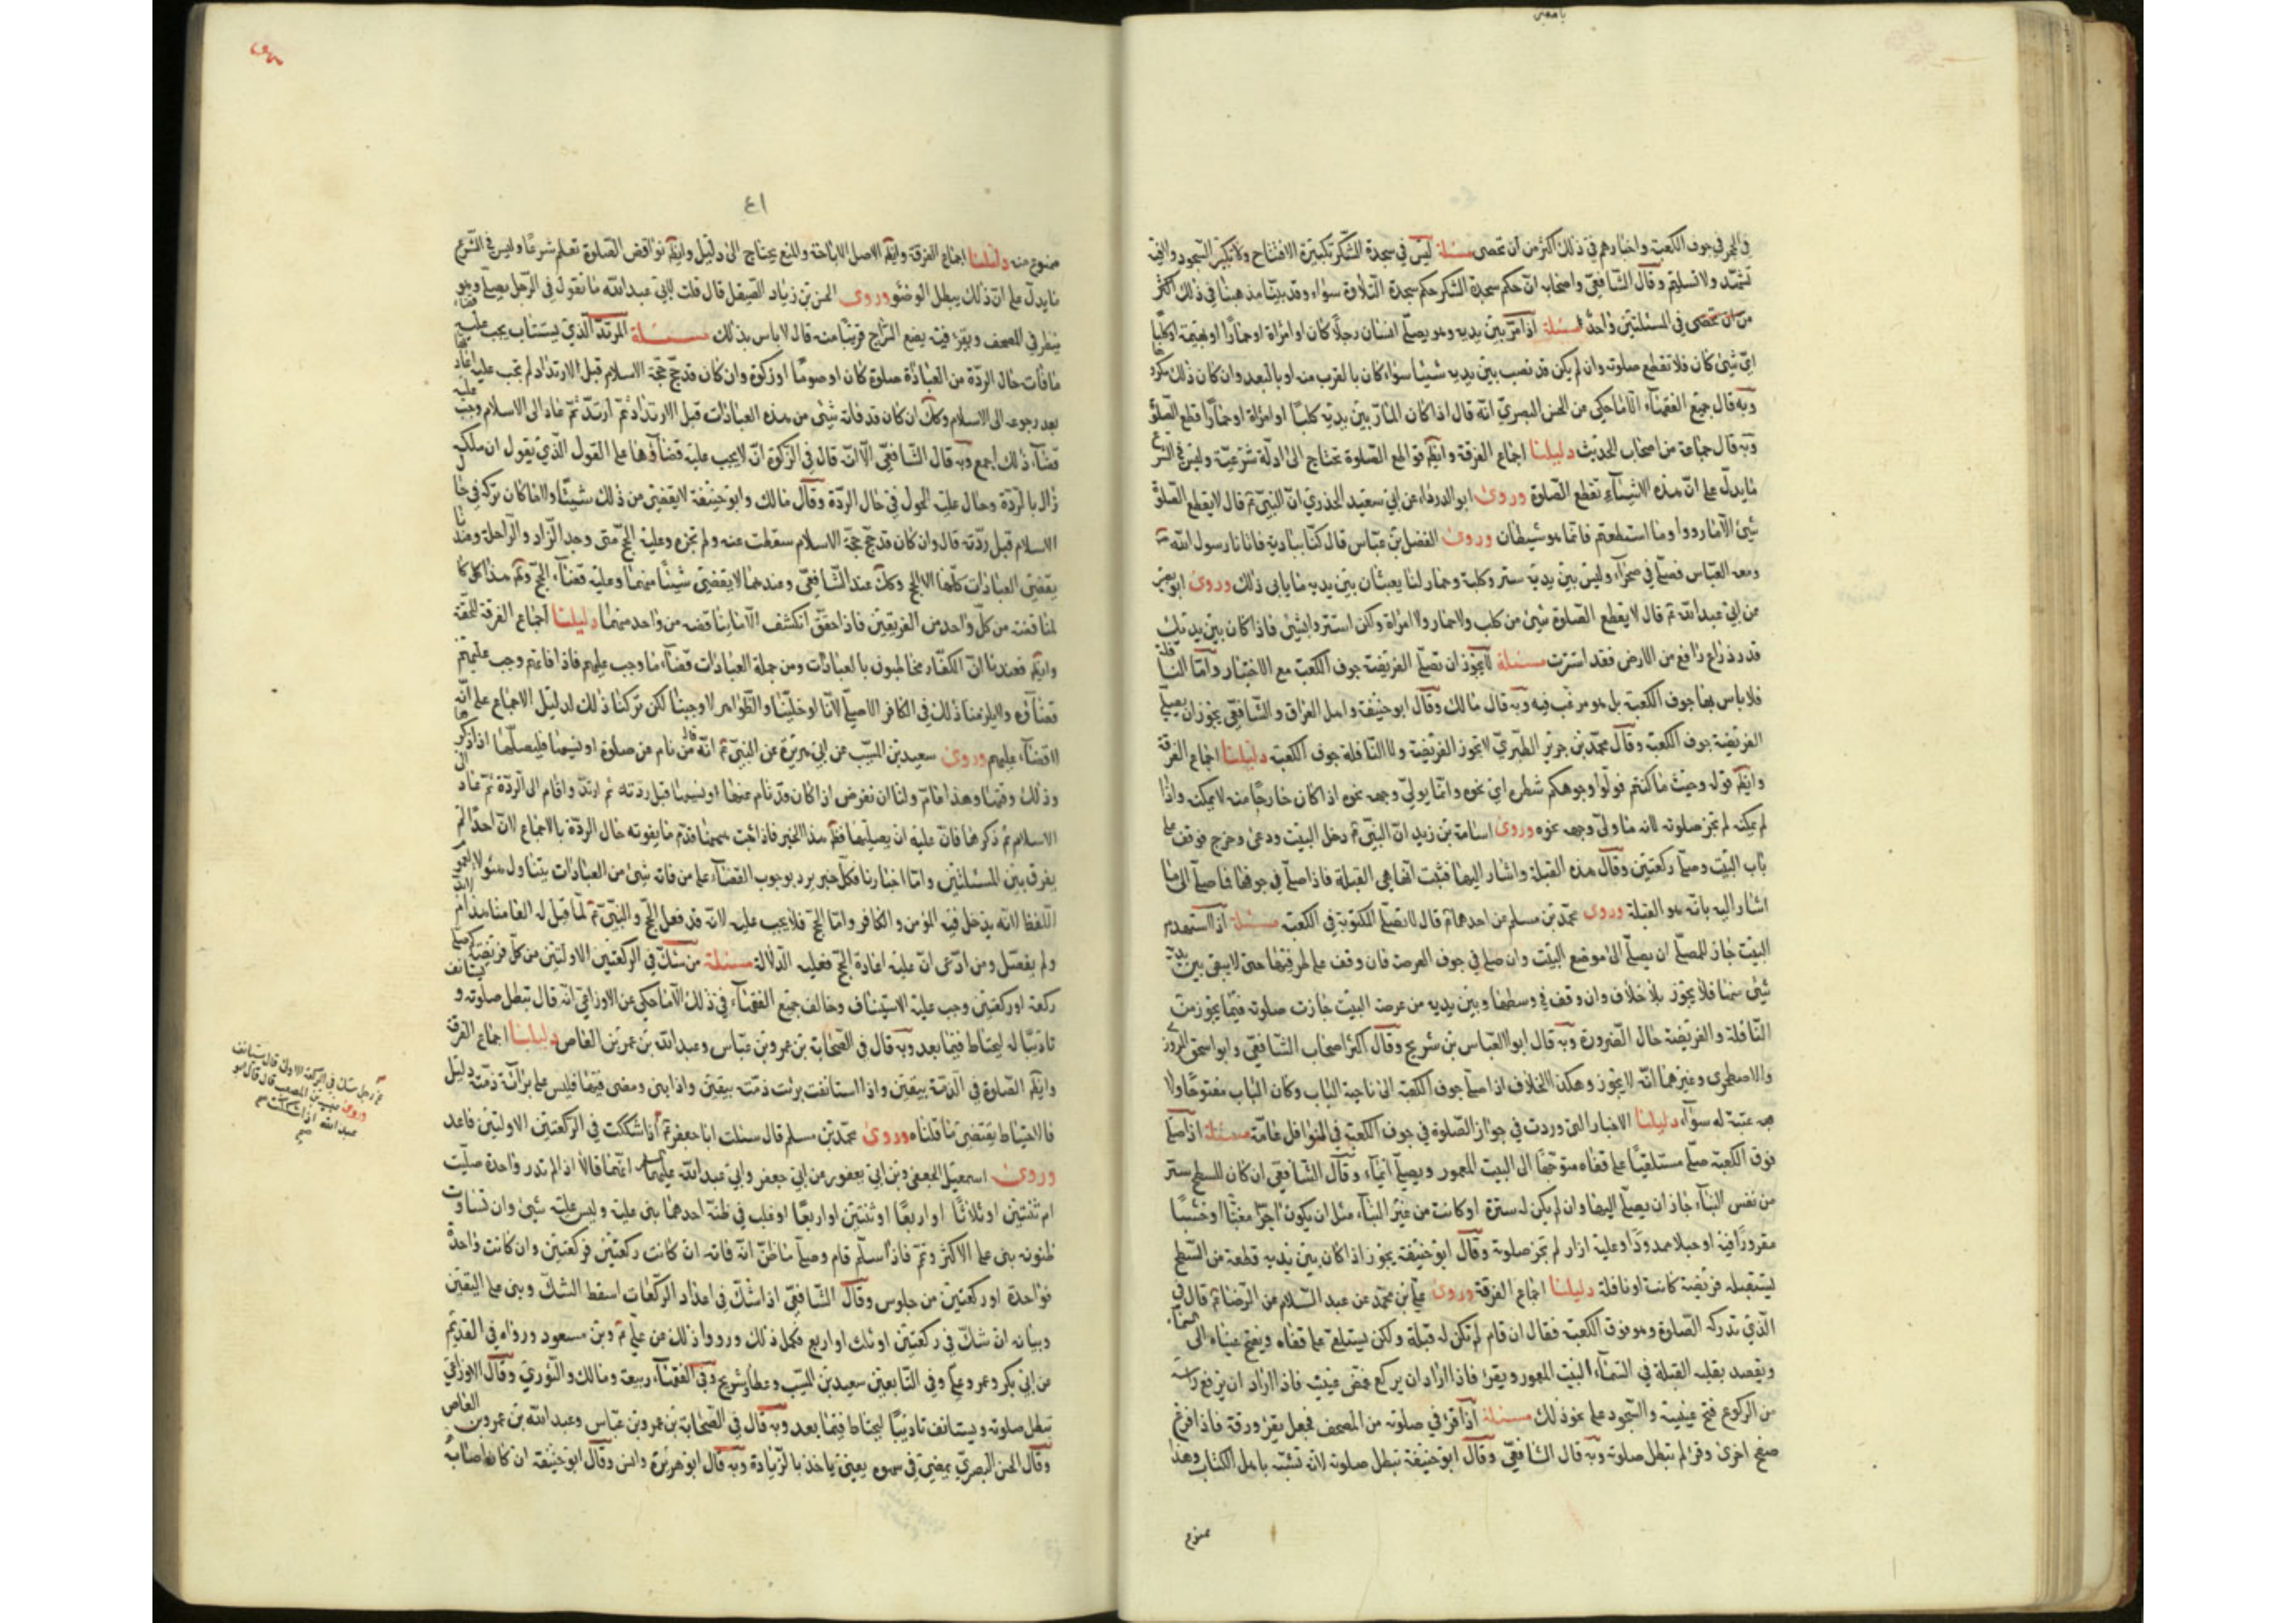 يا معين
في الحجر في جوف الكعبة واخبارهم في ذلك اكثر من ان تحصى مسئلة ليس في سجدة الشكر تكبيرة الافتتاح ولا تكبير السجود
تشهد ولا تسليم وقال الشافعي واصحابه ان حكم سجدة الشكر حكم سجدة التلاوة سواء وقد بينا مذهبنا في ذلك اكثر
من ان تحصى في المسئلتين مسئلة اذا مر بين يديه وهو يصلي انسان رجلا كان او امراة او حمارا او بهيمة او كلبا
اي شيئ كان فلا تقطع صلوته وان لم يكن قد نصب بين يديه شيئا سواء كان بالقرب منه او بالبعد وان كان ذلك مكروها
وبه قال جميع الفقهاء الا ما حكي عن الحسن البصري انه قال اذا كان المار بين يديه كلبا او امراة او حمارا قطع الصلوة
وبه قال جماعة من اصحاب الحديث دليلنا اجماع الفرقة وايضا قواطع الصلوة تحتاج الى ادلة شرعية وليس في الشرع
ما يدل على ان هذه الاشياء تقطع الصلوة وروى ابو الدرداء عن ابي سعيد الخدري ان النبي قال لا يقطع الصلوة
شيئ الا فادرؤا وما استطعتم فانما هو شيطان وروى الفضل بن عباس قال كنا ببادية فاتانا رسول الله
ومعه العباس فصلى في صحراء وليس بين يديه ستر وكلبة وحمار لنا يعبثان بين يديه ما يابى ذلك وروى ابو بصير
عن ابي عبد الله قال لا يقطع الصلوة شيئ من كلب ولا حمار ولا امراة ولكن استتروا بشيئ فاذا كان بين يديك
قدر ذراع رافع من الارض فقد استترت مسئلة لا يجوز ان تصلي الفريضة جوف الكعبة مع الاختيار واما النافلة
فلا باس بها جوف الكعبة بل هو مرغب فيه وبه قال مالك وقال ابو حنيفة واهل العراق والشافعي يجوز ان يصلي
الفريضة جوف الكعبة وقال محمد بن جرير الطبري لا تجوز الفريضة ولا النافلة جوف الكعبة دليلنا اجماع الفرقة
وايضا قوله وحيث ما كنتم فولوا وجوهكم شطره اي نحوه وانما يولي وجهه نحوه اذا كان خارجا منه لا يمكنه واذا
لم يمكنه لم تجز صلوته لانه ما ولى وجهه نحوه وروى اسامة بن زيد ان النبي دخل البيت ودعى وخرج فوقف على
باب البيت وصلى ركعتين وقال هذه القبلة واشار اليها فثبت انها هي القبلة فاذا صلى في جوفها فما صلى الى ما
اشار اليه بانه هو القبلة وروى محمد بن مسلم عن احدهما قال لا تصلى المكتوبة في الكعبة مسئلة اذا استهدم
البيت جاز للمصلي ان يصلي الى موضع البيت وان صلى في جوف العرصة فان وقف على طرفها حتى لا يبقى بين يديه
شيئ منها فلا يجوز بلا خلاف وان وقف في وسطها وبين يديه من عرصة البيت جازت صلوته فيما يجوز من
النافلة والفريضة حال الضرورة وبه قال ابو العباس بن شريح وقال اكثر اصحاب الشافعي وابو اسحق المروزي
والاصطخري وغيرهما انه لا يجوز وهكذا الخلاف اذا صلى جوف الكعبة الى ناحية الباب وكان الباب مفتوحا ولا
عتبة له سواء دليلنا الاخبار التي وردت في جواز الصلوة في جوف الكعبة في النوافل عامة مسئلة اذا صلى
فوق الكعبة صلى مستلقيا على قفاه متوجها الى البيت المعمور ويصلي ايماء وقال الشافعي ان كان للسطح ستر
من نفس البناء جاز ان يصلي اليها وان لم يكن له سترة او كانت من غير البناء مثل ان يكون اجرا معبا او خشبا
مغروزا فيه او حبلا ممدودا وعليه ازار لم تجز صلوته وقال ابو حنيفة يجوز اذا كان بين يديه قطعة من السطح
يستقبله فريضة كانت او نافلة دليلنا اجماع الفرقة وروى علي بن محمد عن عبد السلام عن الرضا قال في
الذي تدركه الصلوة وهو فوق الكعبة فقال ان قام لم تكن له قبلة ولكن يستلقي على قفاه ويفتح عيناه الى السماء
ويقصد بقلبه القبلة في السماء البيت المعمور ويقرء فاذا اراد ان يركع غمض عينيه فاذا اراد ان يرفع راسه
من الركوع فتح عينيه والسجود على نحو ذلك مسئلة اذا قرء في صلوته من المصحف فجعل يقرء ورقة فاذا فرغ
صفح اخرى وقرء لم تبطل صلوته وبه قال الشافعي وقال ابو حنيفة تبطل صلوته لانه تشبه باهل الكتاب وهذا
ممنوع
٤١
ممنوع منه دليلنا اجماع الفرقة وايضا الاصل الاباحة والمنع يحتاج الى دليل وايضا نواقض الصلوة تعلم شرعا وليس في الشرع
ما يدل على ان ذلك يبطل الوضوء وروى الحسن بن زياد الصيقل قال قلت لابي عبد الله ما تقول في الرجل يصلي وهو
ينظر في المصحف ويقرء فيه يضع السراج قريبا منه قال لا باس بذلك مسئلة المرتد الذي يستتاب يجب عليه قضاء
ما فات حال الردة من العبادة صلوة كان او صوما او زكوة وان كان قد حج حجة الاسلام قبل الارتداد لم تجب عليه اعادتها
بعد رجوعه الى الاسلام وكذلك ان كان قد فاته شيئ من هذه العبادات قبل الارتداد ثم ارتد ثم عاد الى الاسلام وجب عليه
قضاء ذلك اجمع وبه قال الشافعي الا انه قال في الزكوة انه لا يجب عليه قضاؤها على القول الذي يقول ان ملكه
زال بالردة وحال عليه الحول في حال الردة وقال مالك وابو حنيفة لا يقضي من ذلك شيئا ولا ما كان تركه في حال
الاسلام قبل ردته قال وان كان قد حج حجة الاسلام سقطت عنه ولم تجزه وعليه الحج متى وجد الزاد والراحلة وعندنا
يقضي العبادات كلها الا الحج وكذلك عند الشافعي وعندهما لا يقضي شيئا منها وعليه قضاء الحج
مناقضة من كل واحد من الفريقين فاذا حقق انكشف الامر مناقضة من واحد منهما دليلنا اجماع الفرقة المحقة
وايضا فعندنا ان الكفار مخاطبون بالعبادات ومن جملة العبادات قضاء ما وجب عليهم فاذا فاتهم وجب عليهم
قضاؤه ولا يلزمنا ذلك في الكافر الاصلي لانا لو خلينا والظواهر لاوجبنا لكن تركنا ذلك لدليل الاجماع على انه
لا قضاء عليهم وروى سعيد بن المسيب عن ابي هريرة عن النبي انه قال من نام عن صلوة او نسيها فليصلها اذا ذكرها
وذلك وقتها وهذا عام ولنا ان نفرض اذا كان قد نام عنها او نسيها قبل ردته ثم ارتد واقام الى الردة ثم عاد الى
الاسلام ثم ذكرها فان عليه ان يصليها بظاهر هذا الخبر فاذا ثبت فيما قدم ما يفوته حال الردة بالاجماع لان احدا لم
يفرق بين المسئلتين واما اخبارنا فكل خبر يرد بوجوب القضاء على من فاته شيئ من العبادات يتناول هؤلاء لعموم
اللفظ لانه يدخل فيه المؤمن والكافر واما الحج فلا يجب عليه لانه قد فعل الحج والنبي لما قيل له العامنا هذا ام للابد
ولم يفصل ومن ادعى ان عليه اعادة الحج فعليه الدلالة مسئلة من شك في الركعتين الاولتين من كل فريضة كم صلى
ركعة او ركعتين وجب عليه الاستيناف وخالف جميع الفقهاء في ذلك الا ما حكي عن الاوزاعي انه قال تبطل صلوته ويستانف
تاديبا له ليحتاط فيما بعد وبه قال في الصحابة بن عمر وبن عباس وعبد الله بن عمرو بن العاص دليلنا اجماع الفرقة
وايضا الصلوة في الذمة بيقين واذا استانفت برئت ذمته بيقين واذا بنى ومضى فيها فليس على برائة ذمته دليل
فالاحتياط يقتضي ما قلناه وروى محمد بن مسلم قال سئلت ابا جعفر اذا شككت في الركعتين الاولتين فاعد
وروى اسمعيل الجعفي وبن ابي يعفور عن ابي جعفر وابي عبد الله عليهما السلم انهما قالا اذا لم تدر واحدة صليت
ام ثنتين او ثلاثا او اربعا او ثنتين او اربعا او غلب في ظنه احدهما بنى عليه وليس عليه شيئ وان تساوت
ظنونه بنى على الاكثر وتم فاذا سلم قام وصلى ما ظن انه فاته ان كانت ركعتين فركعتين وان كانت واحدة
فواحدة او ركعتين من جلوس وقال الشافعي اذا شك في اعداد الركعات اسقط الشك وبنى على اليقين
وبيانه ان شك في ركعتين او ثلث او اربع فكمل ذلك ورووا ذلك عن علي وبن مسعود ورواه في القديم
عن ابي بكر وعمر وعلي وفي التابعين سعيد بن المسيب وعطا وشريح وفي الفقهاء ربيعة ومالك والثوري وقال الاوزاعي
تبطل صلوته ويستانف تاديبا ليحتاط فيما بعد وبه قال في الصحابة بن عمر وبن عباس وعبد الله بن عمرو بن العاص
وقال الحسن البصري يمضي في سهوه يعني ياخذ بالزيادة وبه قال ابو هريرة وانس وقال ابو حنيفة ان كان اصابه
رجل شك في الركعة الاولى قال يستانف
وروى
عبد الله اذا شككت